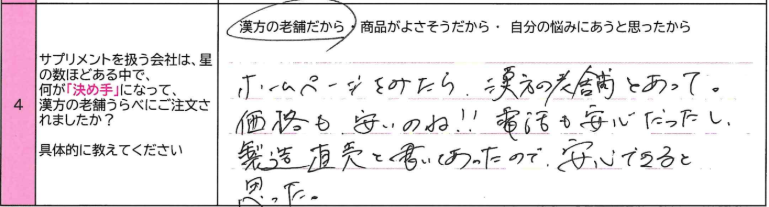 4
サプリメントを扱う会社は、星
の数ほどある中で、
何が「決め手」になって、
漢方の老舗うらべにご注文さ
れましたか？
具体的に教えてください
漢方の老舗だから・商品がよさそうだから・ 自分の悩みにあうと思ったから
ホームページをみたら、漢方の老舗とあって。
価格も 安いのね!! 電話も安心だったし、
製造直売と書いてあったので、安心できると
思った。